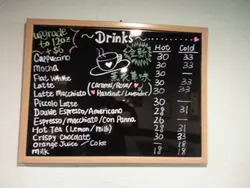 upgrade
to 12oz
+ $6
~ Drinks ~
Hot Cold
Cappuccino 30 33
Mocha 30 33
Flat White 30 —
Latte (Caramel/Rose/ 30 33
Latte Macchiato Hazelnut/Lavender) 30 33
Piccolo Latte 26 —
Double Espresso/Americano 28 31
Espresso/macchiato/Con Panna 26 —
Hot Tea (Lemon/Milk) 28 31
Crispy Chocolate 30 33
Orange Juice / Coke
Milk 18 18